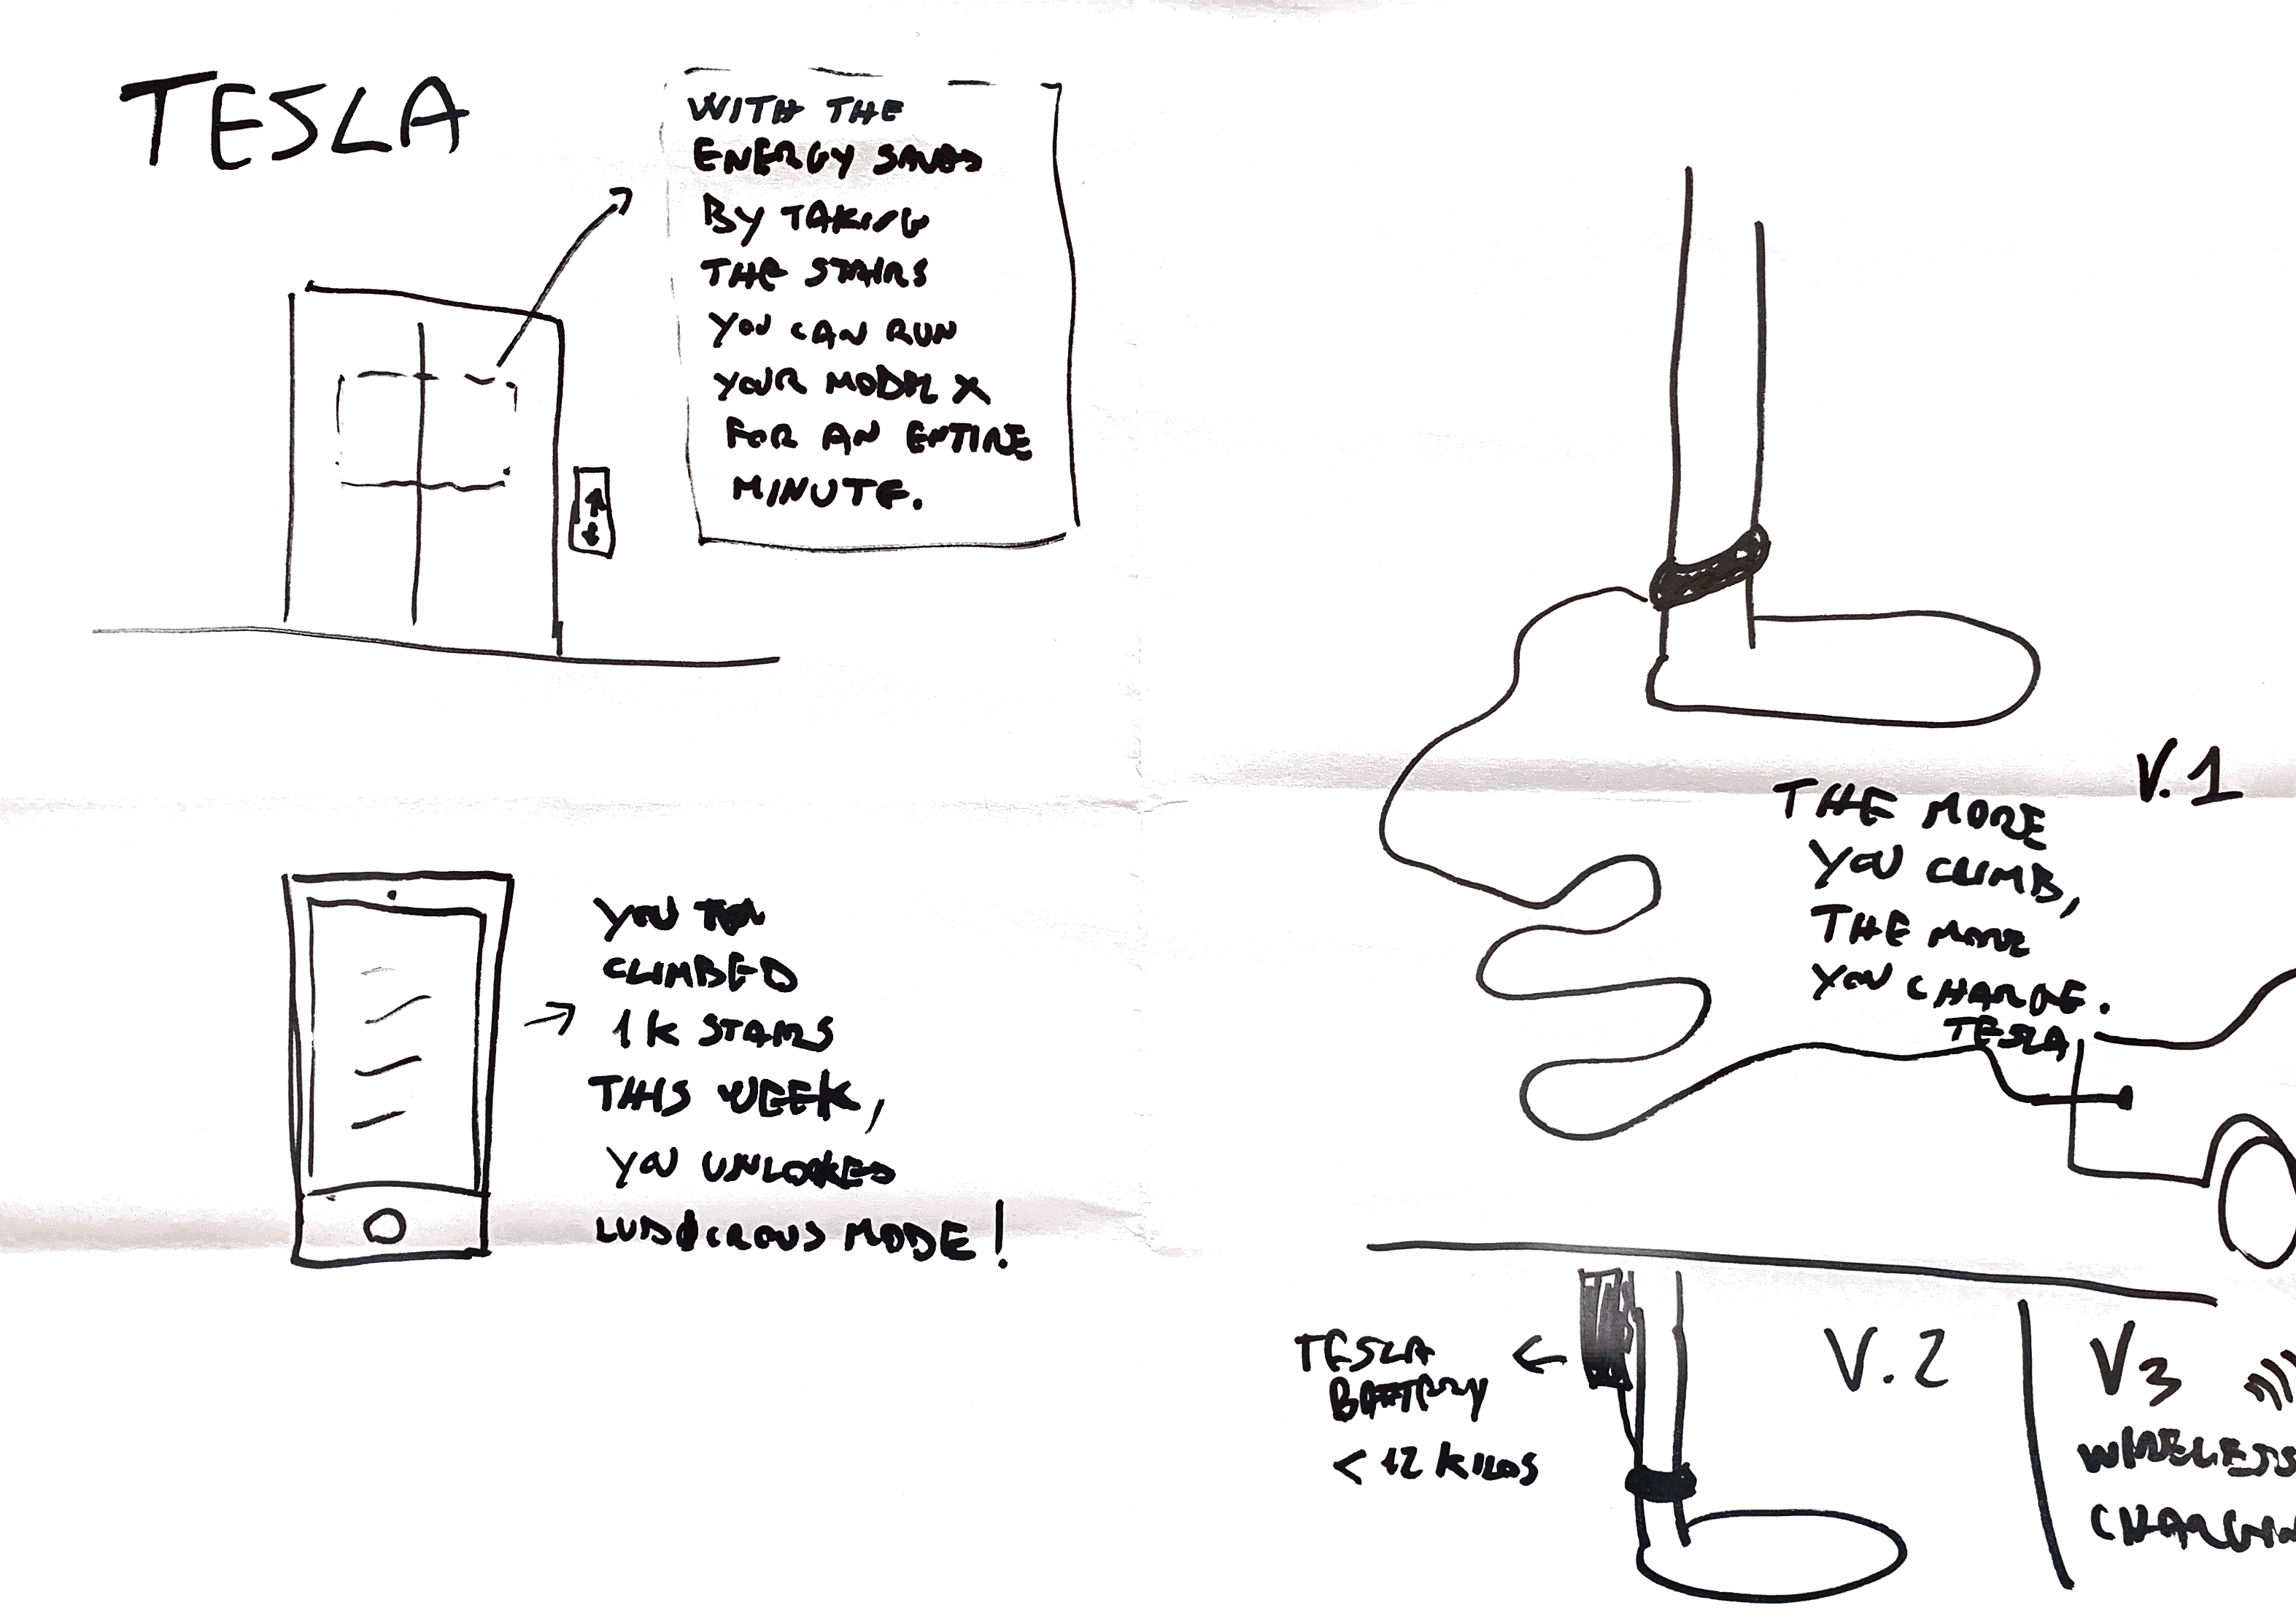 TESLA
WITH THE
ENERGY SAVED
BY TAKING
THE STAIRS
YOU CAN RUN
YOUR MODEL X
FOR AN ENTIRE
MINUTE.
YOU
CLIMBED
1K STAIRS
THIS WEEK,
YOU UNLOCKED
LUDICROUS MODE!
V.1
THE MORE
YOU CLIMB,
THE MORE
YOU CHARGE.
TESLA
TESLA
BATTERY
< 12 KILOS
V.2
V3
WIRELESS
CHARGIN